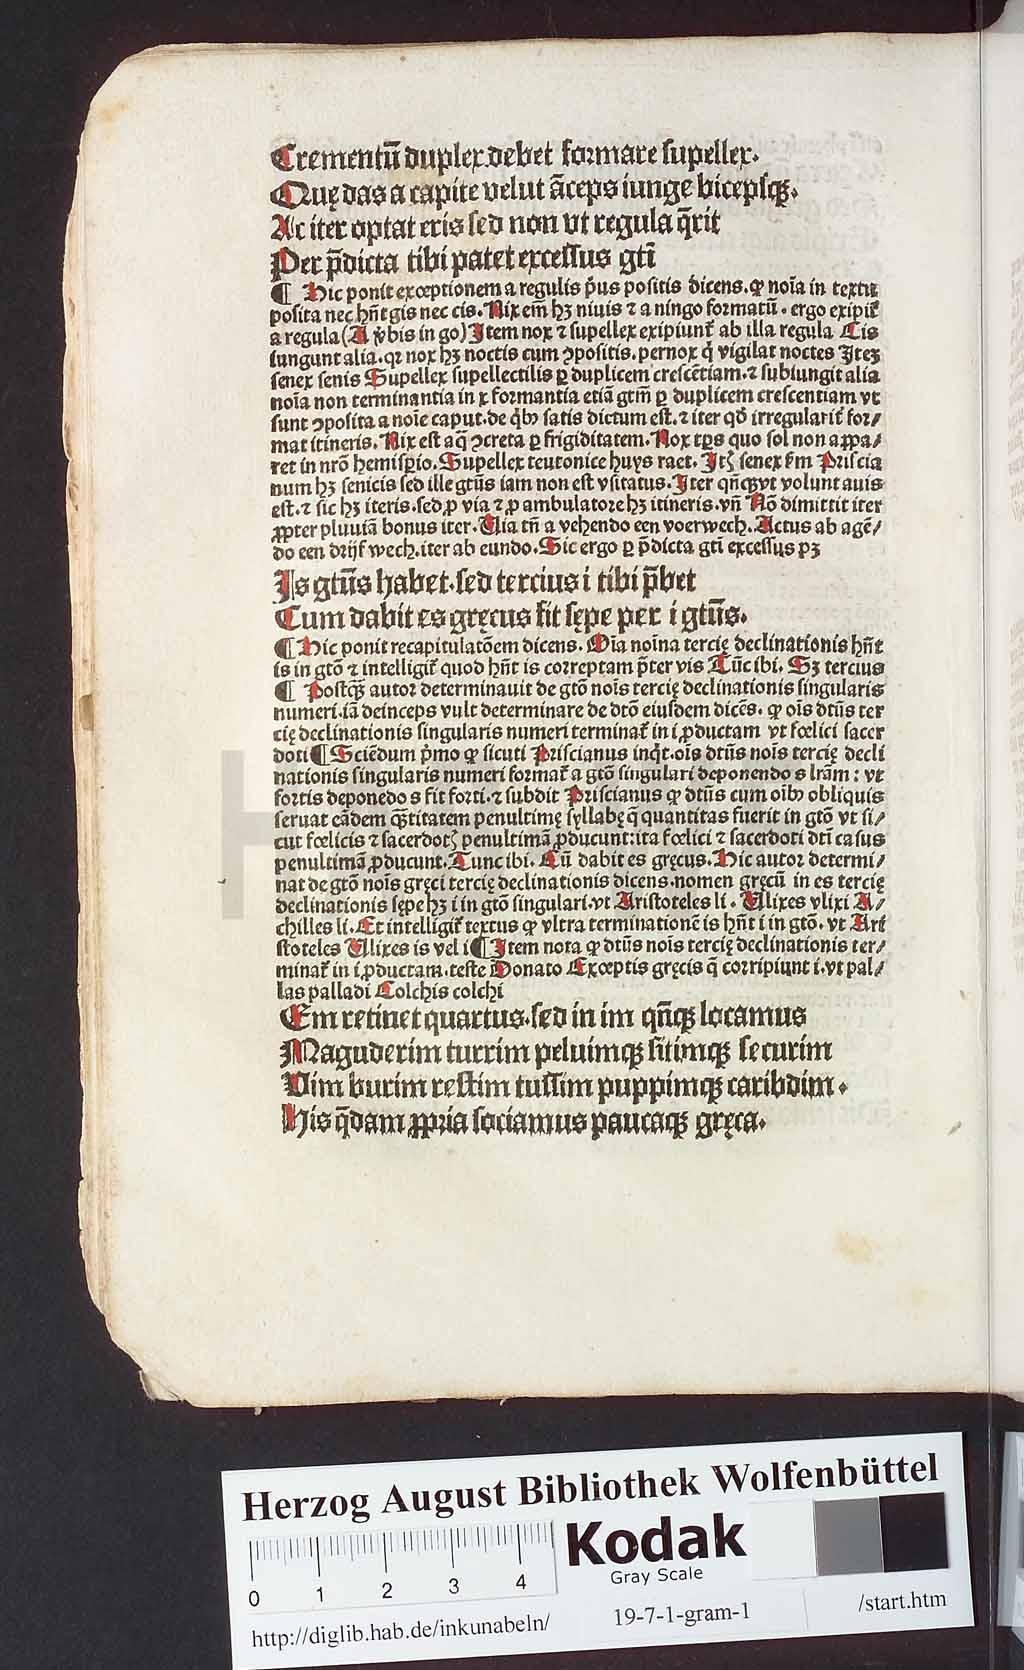 Crementū duplex debet formare supellex.
Quę das a capite velut āceps iunge bicepsqꝫ.
Ac iter optat eris sed non vt regula q̄rit
Per p̄dicta tibi patet excessus gti̅
¶ Hic ponit exceptionem a regulis p̄us positis dicens. ꝙ noīa in textu
posita nec hn̄t gis nec cis. Nix em̄ hꝫ niuis ⁊ a ningo formatū. ergo exipit̄
a regula (A v̄bis in go) Item nox ⁊ supellex exipiunt̄ ab illa regula Cis
iungunt alia. qꝛ nox hꝫ noctis cum ꝯpositis. pernox q̇ vigilat noctes Iteꝫ
senex senis Supellex supellectilis ꝑ duplicem crescētiam. ⁊ subiungit alia
noīa non terminantia in x formantia etiā gtm̄ ꝑ duplicem crescentiam vt
sunt ꝯposita a noīe caput. de qͥbꝰ satis dictum est. ⁊ iter qd̄ irregularit̄ for/
mat itineris. Nix est aq̄ ꝯcreta ꝑ frigiditatem. Nox tp̄s quo sol non appa/
ret in nr̄o hemisꝑio. Supellex teutonice huys raet. Itꝫ senex ẜm Priscia
num hꝫ senicis sed ille gtūs iam non est vsitatus. Iter qn̄qꝫ vt volunt auis
est. ⁊ sic hꝫ iteris. sed ꝓ via ⁊ ꝓ ambulatore hꝫ itineris. vn̄ Nō dimittit iter
ꝓpter pluuiā bonus iter. Via tn̄ a vehendo een voerwech. Actus ab agē/
do een drijfwech. iter ab eundo. Sic ergo ꝑ p̄dicta gti̅ excessus pꝫ
Is gtūs habet. sed tercius i tibi p̄bet
Cum dabit es gręcus fit sępe per i gtūs.
¶ Hic ponit recapitulatōem dicens. Oīa noīna tercię declinationis hn̄t
is in gtō ⁊ intelligit̄ quod hn̄t is correptam p̄ter vis Tūc ibi. Sꝫ tercius
¶ Postqꝫ̄ autor determinauit de gtō noīs tercię declinationis singularis
numeri. iā deinceps vult determinare de dtō eiusdem dicēs. ꝙ oīs dtūs ter
cię declinationis singularis numeri terminat̄ in i ꝓductam vt fœlici sacer
doti ¶ Sciēdum pͥmo ꝙ sicuti Priscianus inqͥt. oīs dtūs noīs tercię decli
nationis singularis numeri format̄ a gtō singulari deponendo s lrām: vt
fortis deponēdo s fit forti. ⁊ subdit Priscianus ꝙ dtūs cum oībꝰ obliquis
seruat eādem quātitatem penultimę syllabę q̄ quantitas fuerit in gtō vt si/
cut fœlicis ⁊ sacerdotꝭ penultimā ꝓducunt: ita fœlici ⁊ sacerdoti dti̅ casus
penultimā ꝓducunt. Tunc ibi. Cū dabit es gręcus. Hic autor determi/
nat de gtō noīs gręci tercię declinationis dicens. nomen gręcū in es tercię
declinationis sępe hꝫ i in gtō singulari. vt Aristoteles li. Vlixes vlixi A/
chilles li. Et intelligit̄ textus ꝙ vltra terminationē is hn̄t i in gtō. vt Ari
stoteles Vlixes is vel i ¶ Item nota ꝙ dtūs noīs tercię declinationis ter/
minat̄ in i ꝓductam. teste Donato Exceptis gręcis q̄ corripiunt i. vt pal/
las palladi Colchis colchi
Em retinet quartus. sed in im qn̄qꝫ locamus
Maguderim turrim peluimqꝫ sitimqꝫ securim
Vim burim restim tussim puppimqꝫ caribdim.
His q̄dam ꝓpria sociamus paucaqꝫ gręca.
Herzog August Bibliothek Wolfenbüttel
Kodak
Gray Scale
0 1 2 3 4
http://diglib.hab.de/inkunabeln/ 19-7-1-gram-1 /start.htm